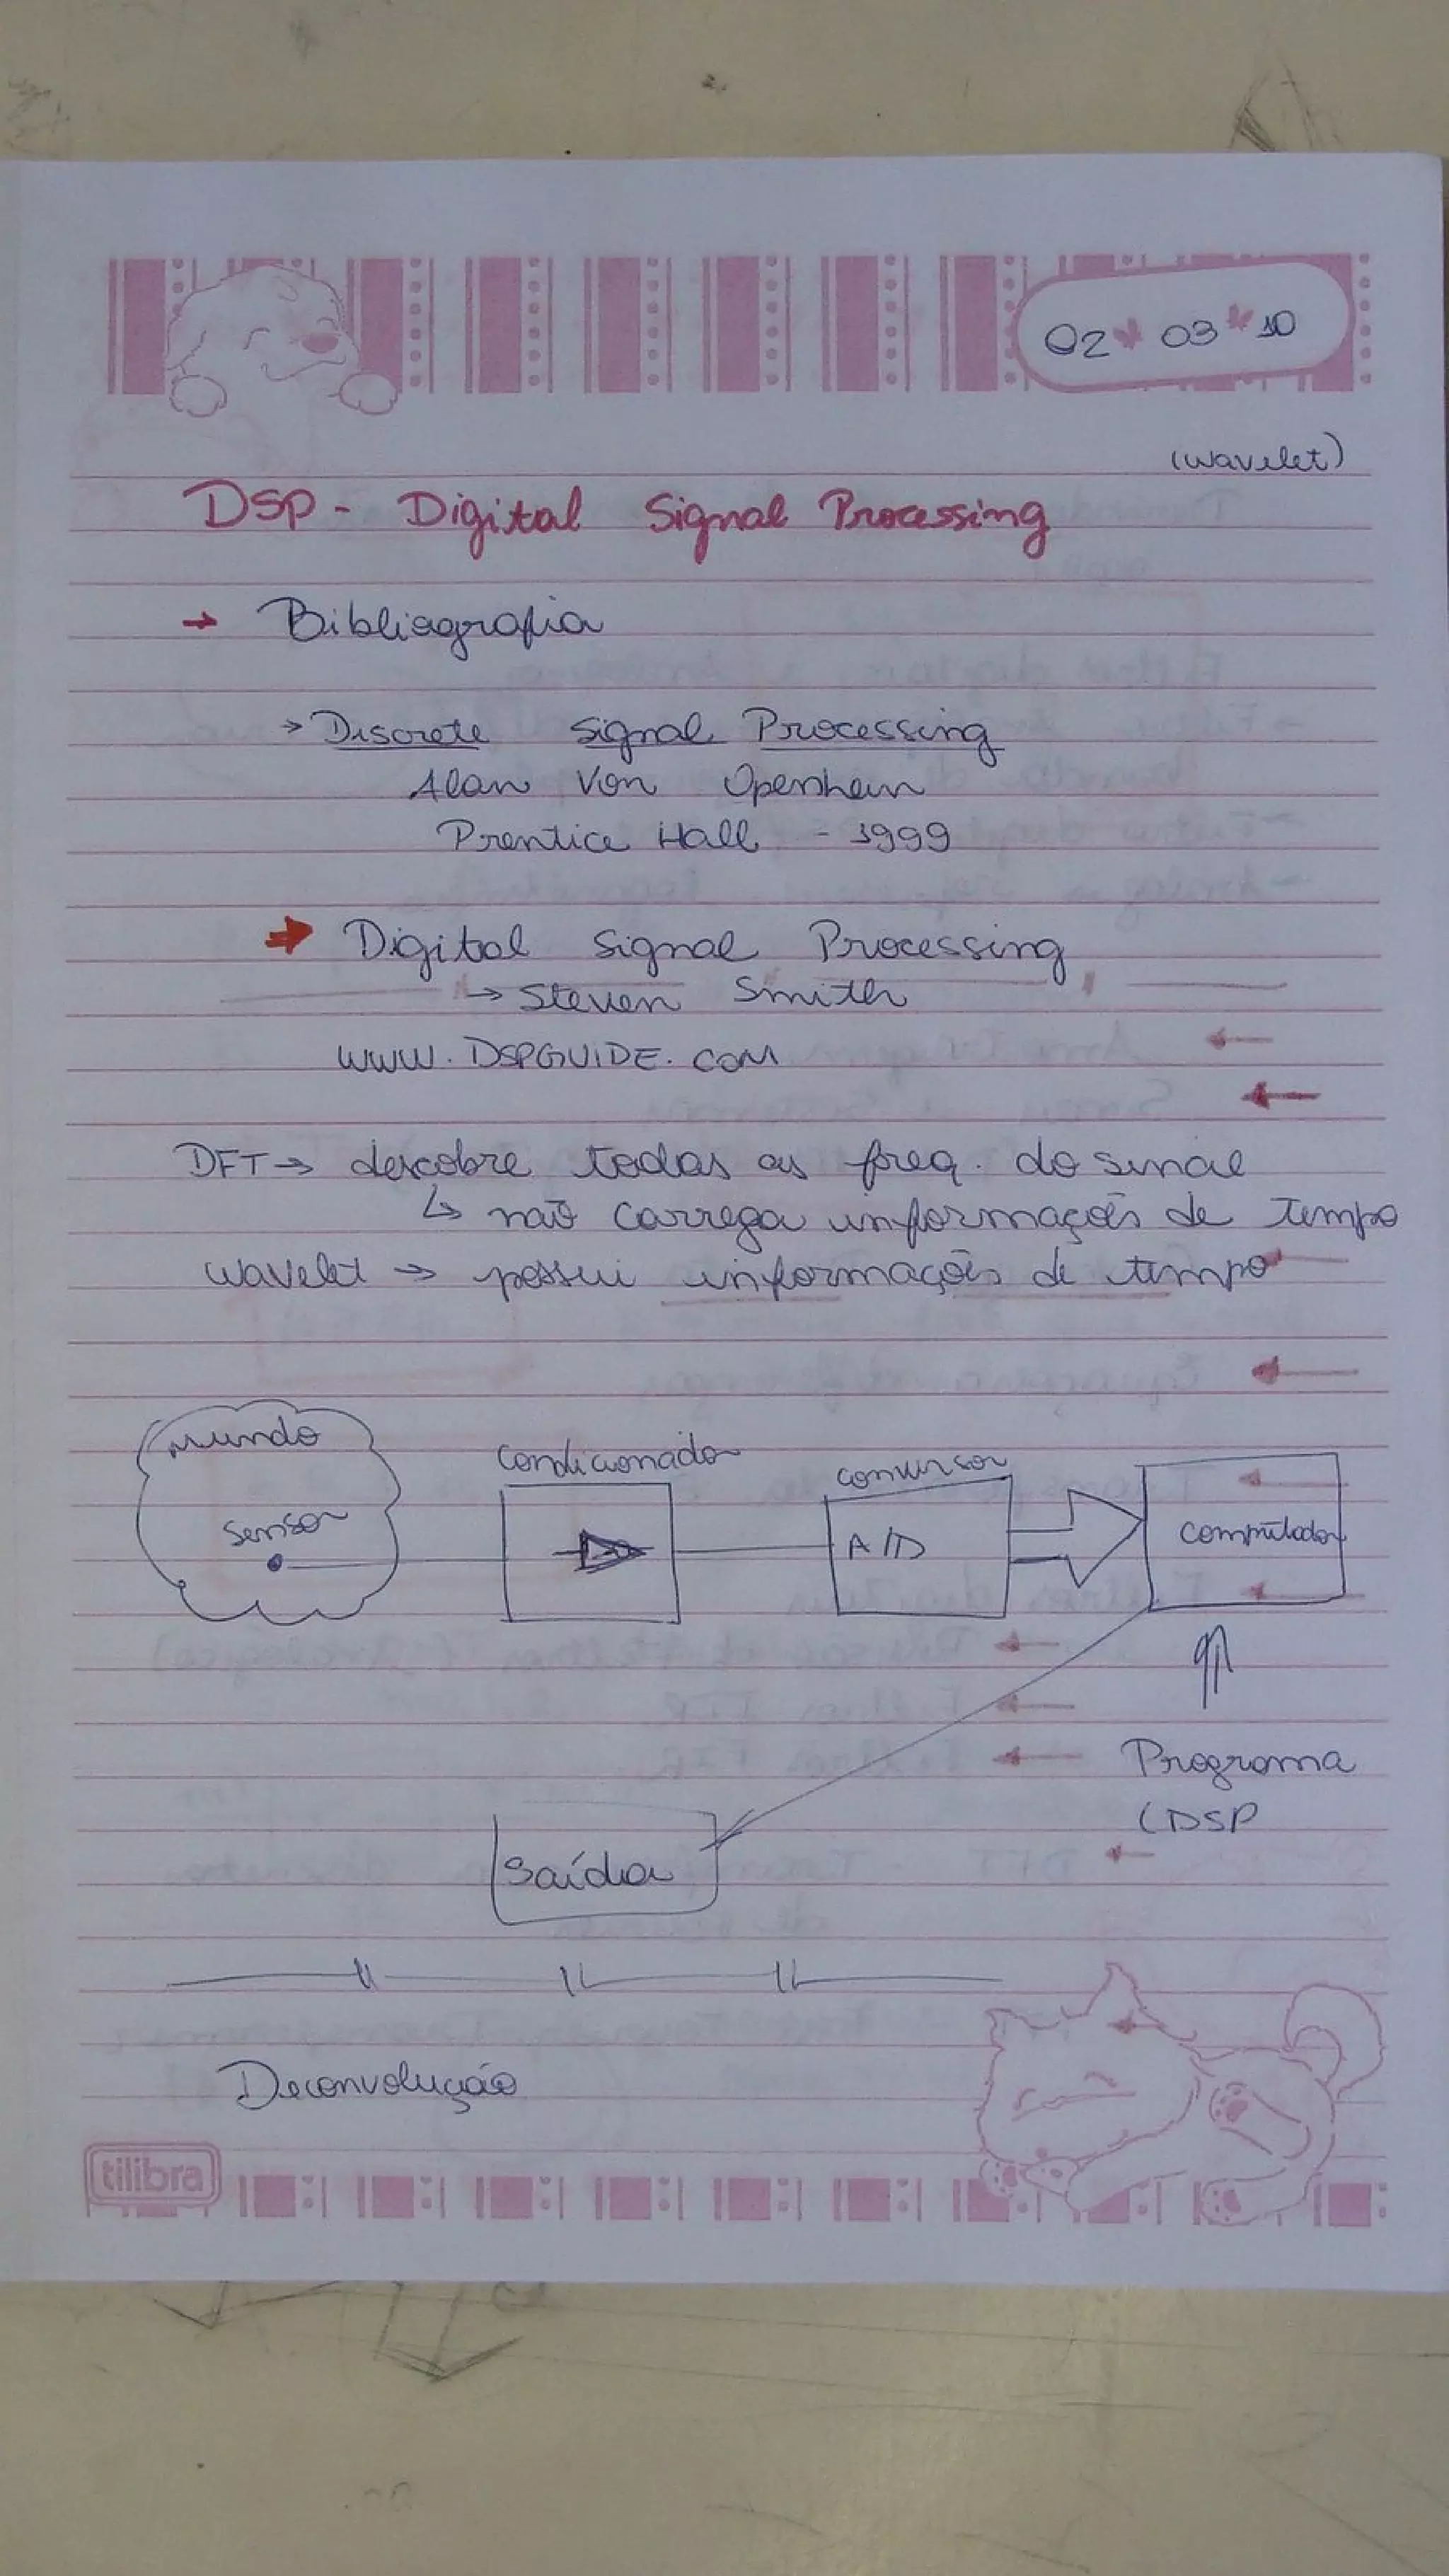 02 03 10
(wavelet)
DSP - Digital Signal Processing
→ Bibliografia
→ Discrete Signal Processing
Alan Von Openhein
Prentice Hall - 1999
→ Digital Signal Processing
→ Steven Smith
WWW.DSPGUIDE.COM
DFT → descobre todas as freq. do sinal
↳ não carrega informações de tempo
Wavelet → possui informações de tempo
mundo
sensor
condicionador
conversor
A/D
computador
Programa
(DSP
Saída
Deconvolução
tilibra